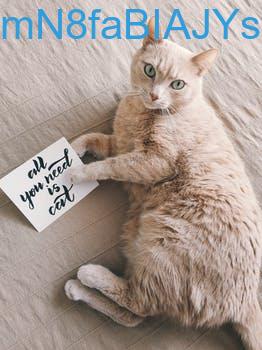 mN8faBIAJYs
all
you need
is
cat